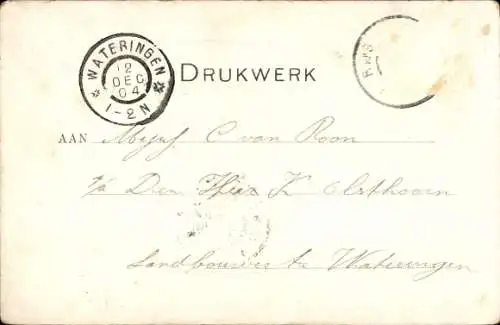 WATERINGEN
12
DEC
04
1-2N
DRUKWERK
AAN Mejuf C van Roon
p/a Den Heer K Olsthoorn
Landbouwer te Wateringen